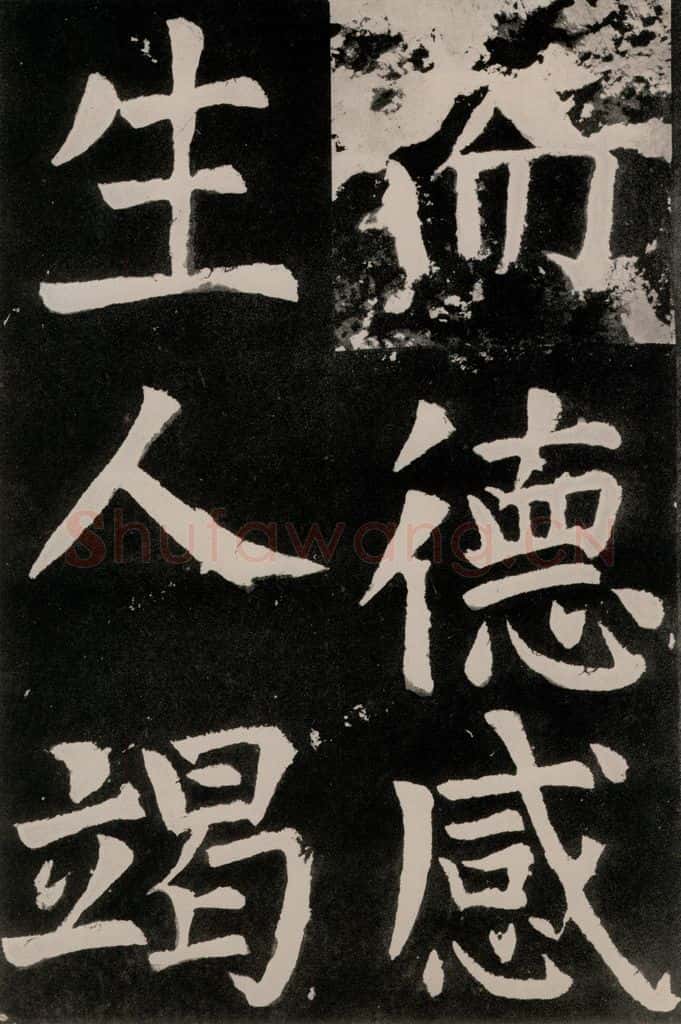 德感
生人竭
Shufawang.CN